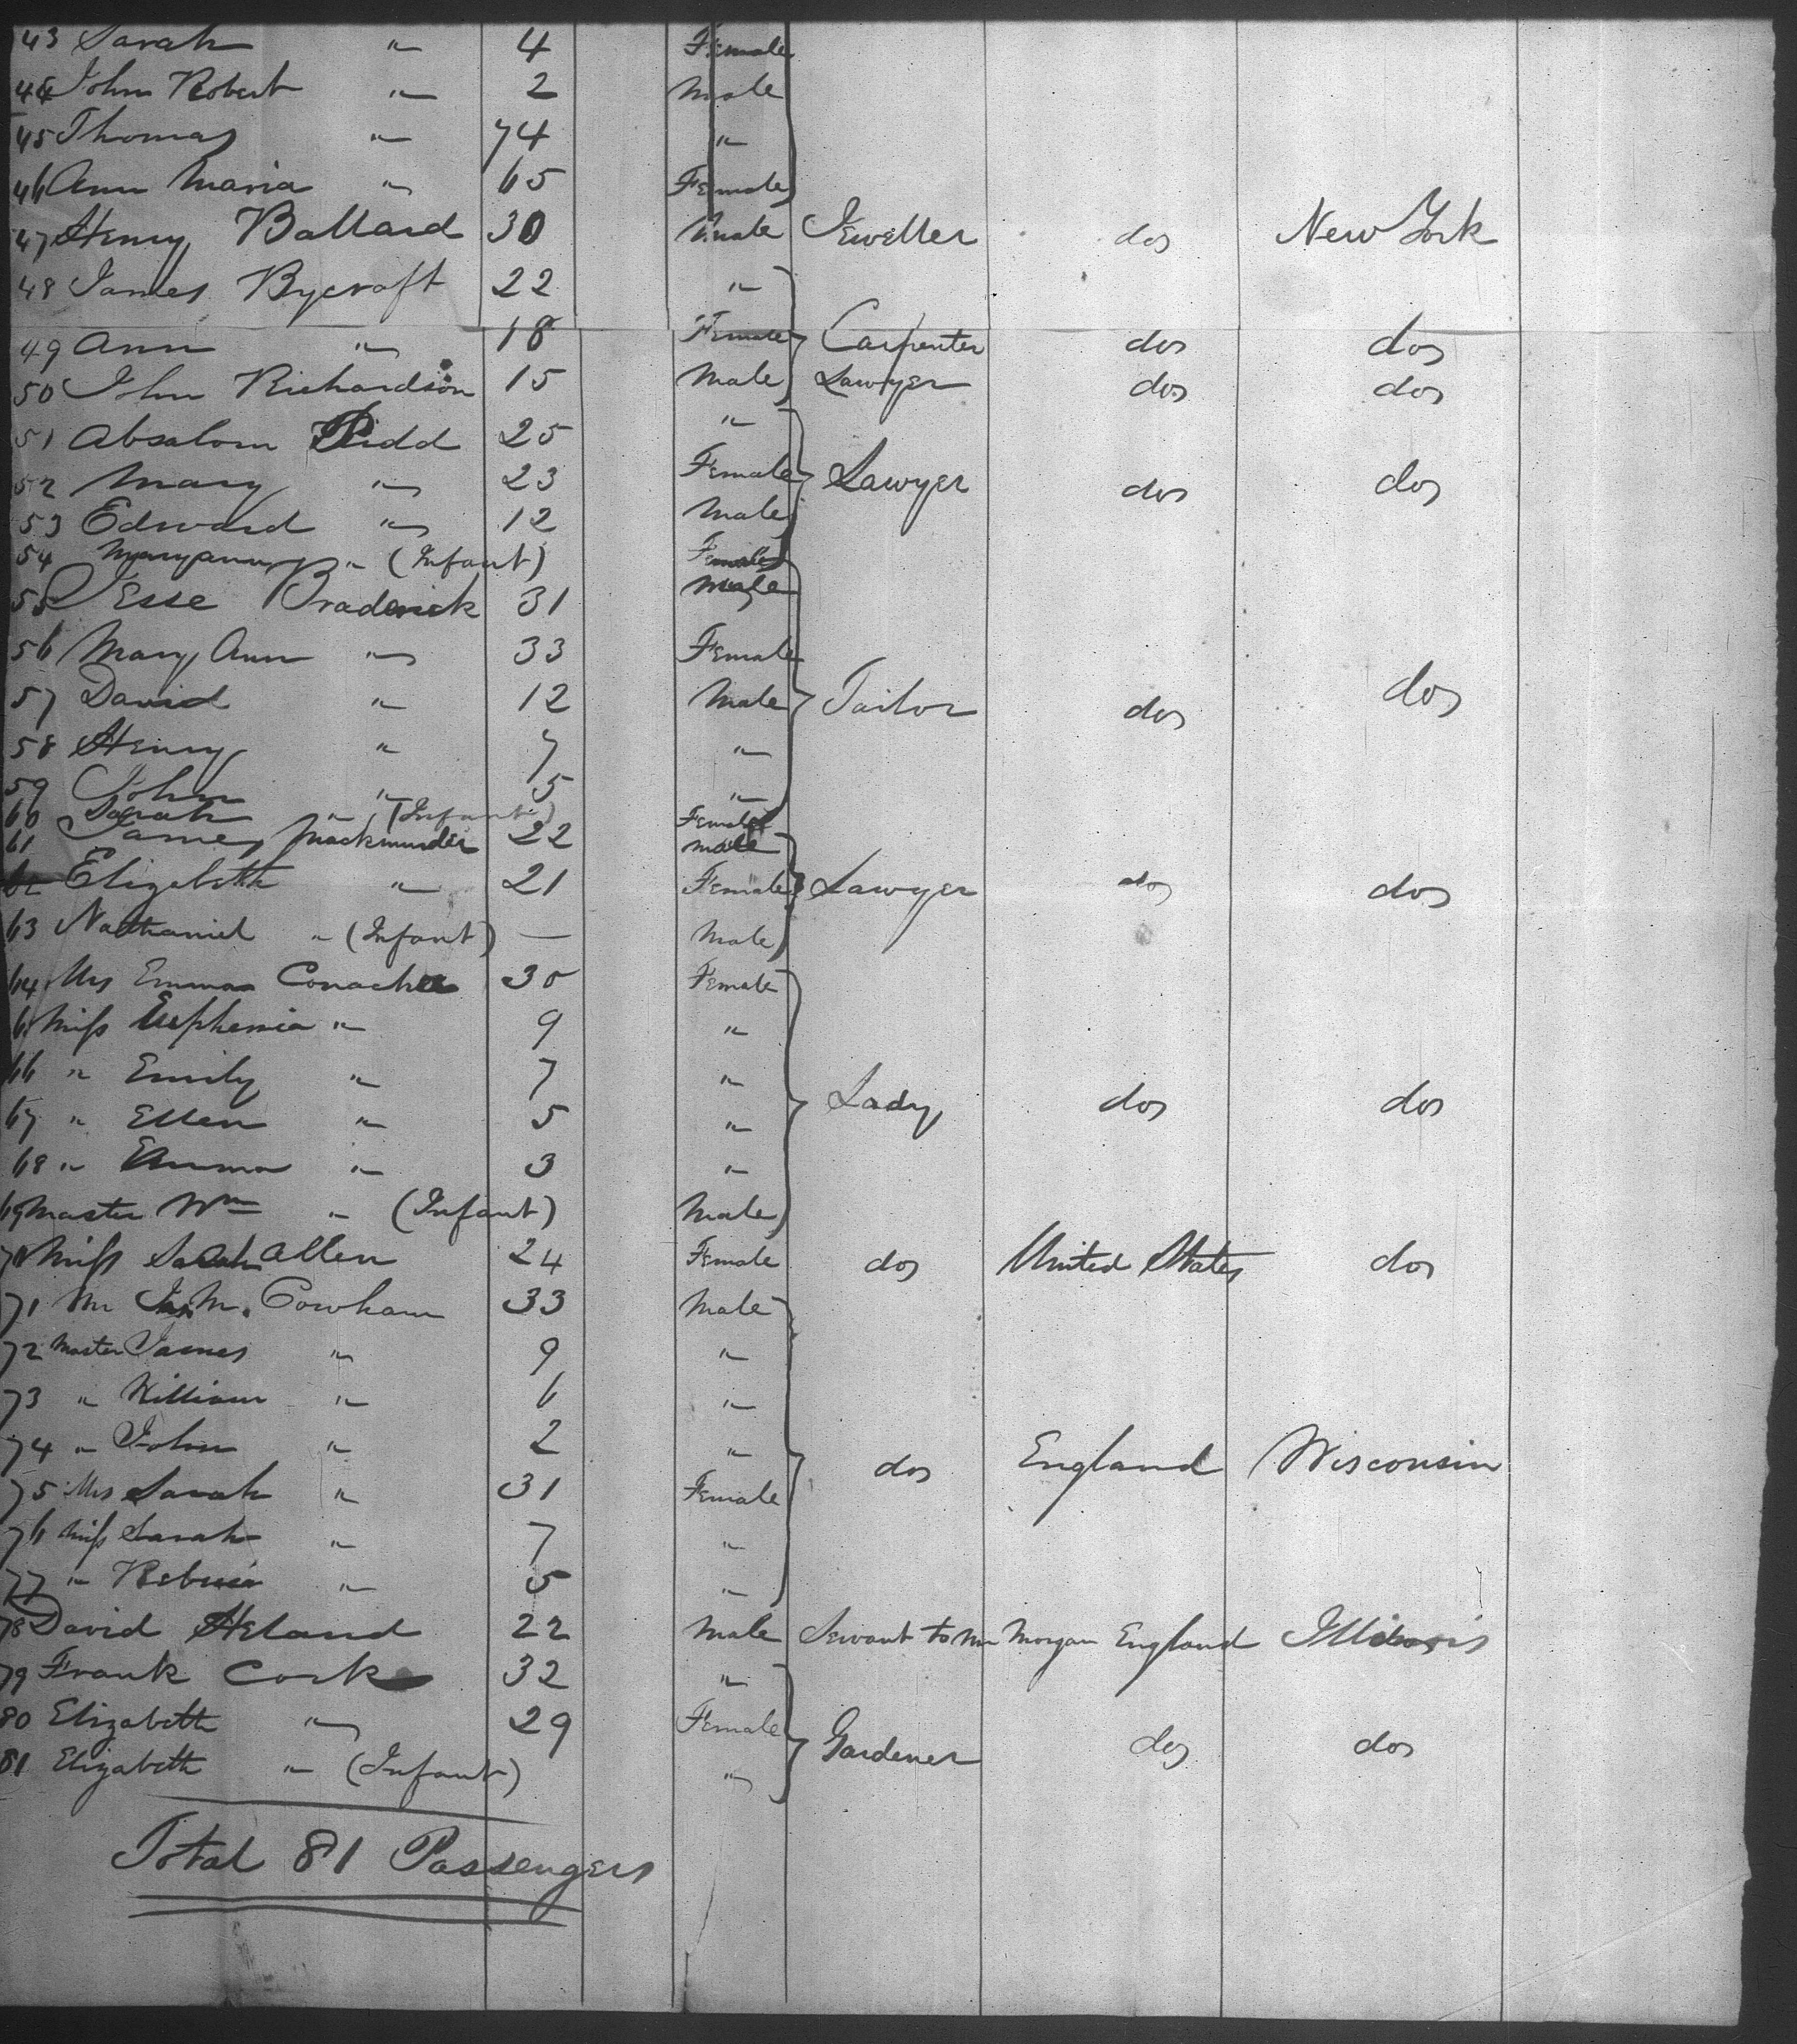 43 Sarah " 4 Female
44 John Robert " 2 Male
45 Thomas " 74 "
46 Ann Maria " 65 Female
47 Henry Ballard 30 Male Jeweller do New York
48 James Bycroft 22 "
49 Ann " 18 Female Carpenter do do
50 John Richardson 15 Male Lawyer do do
51 Absalom Pidd 25 "
52 Mary " 23 Female Lawyer do do
53 Edward " 12 Male
54 Maryann " (Infant) Female
55 Jesse Braderick 31 Male
56 Mary Ann " 33 Female
57 David " 12 Male Tailor do do
58 Henry " 7 "
59 John " 5 "
60 Sarah " (Infant) Female
61 James Mackmurder 22 Male
62 Elizabeth " 21 Female Lawyer do do
63 Nathaniel " (Infant) — Male
64 Mrs Emma Conacher 30 Female
65 Miss Euphemia " 9 "
66 " Emily " 7 "
67 " Ellen " 5 " Lady do do
68 " Emma " 3 "
69 Master Wm " (Infant) Male
70 Miss Sarah Allen 24 Female do United States do
71 Mr Jas. M. Cowham 33 Male
72 Master James " 9 "
73 " William " 6 "
74 " John " 2 " do England Wisconsin
75 Mrs Sarah " 31 Female
76 Miss Sarah " 7 "
77 " Rebecca " 5 "
78 David Heland 22 Male Servant to Mr Morgan England Illinois
79 Frank Cork 32 "
80 Elizabeth " 29 Female Gardener do do
81 Elizabeth " (Infant) "
Total 81 Passengers